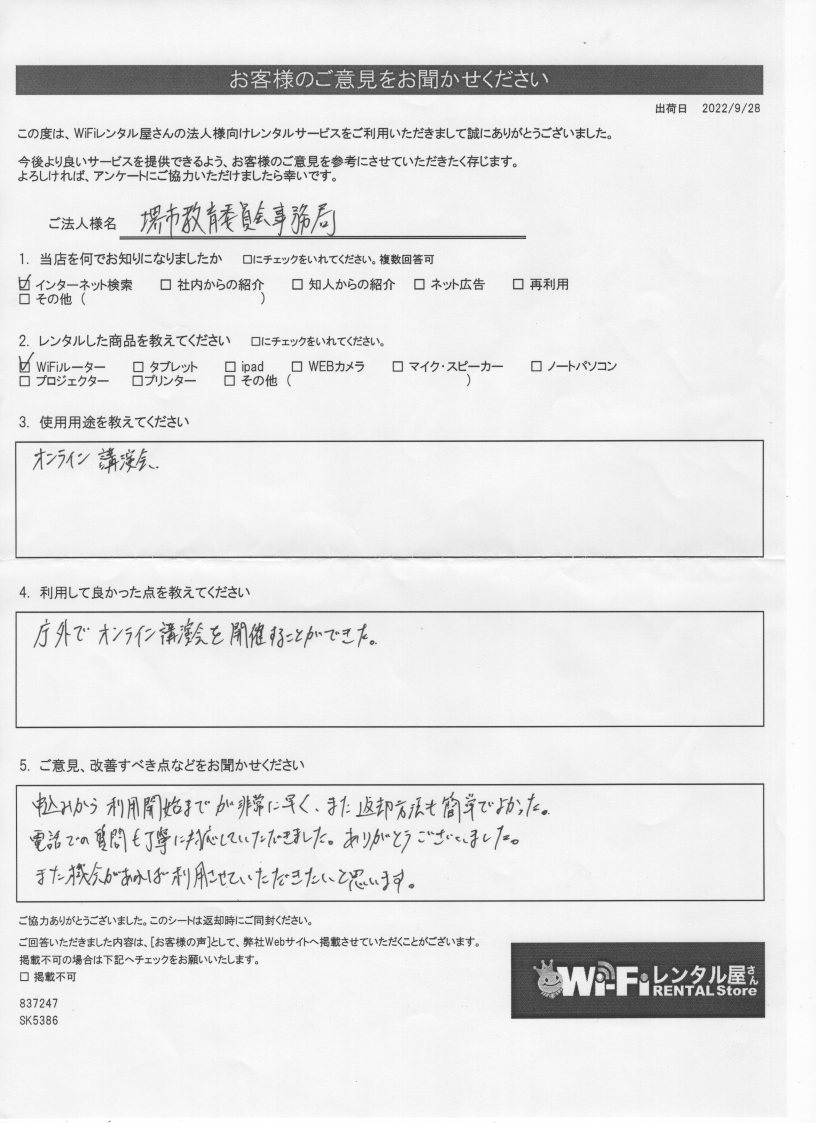 お客様のご意見をお聞かせください
出荷日 2022/9/28
この度は、WiFiレンタル屋さんの法人様向けレンタルサービスをご利用いただきまして誠にありがとうございました。
今後より良いサービスを提供できるよう、お客様のご意見を参考にさせていただきたく存じます。
よろしければ、アンケートにご協力いただけましたら幸いです。
ご法人様名 堺市教育委員会事務局
1. 当店を何でお知りになりましたか □にチェックをいれてください。複数回答可
☑ インターネット検索 □ 社内からの紹介 □ 知人からの紹介 □ ネット広告 □ 再利用
□ その他 ( )
2. レンタルした商品を教えてください □にチェックをいれてください。
☑ WiFiルーター □ タブレット □ ipad □ WEBカメラ □ マイク・スピーカー □ ノートパソコン
□ プロジェクター □プリンター □ その他 ( )
3. 使用用途を教えてください
オンライン講演会.
4. 利用して良かった点を教えてください
庁外でオンライン講演会を開催することができた。
5. ご意見、改善すべき点などをお聞かせください
申込みから利用開始までが非常に早く、また返却方法も簡単でよかった。
電話での質問も丁寧に対応していただきました。ありがとうございました。
また機会があれば利用させていただきたいと思います。
ご協力ありがとうございました。このシートは返却時にご同封ください。
ご回答いただきました内容は、[お客様の声]として、弊社Webサイトへ掲載させていただくことがございます。
掲載不可の場合は下記へチェックをお願いいたします。
□ 掲載不可
837247
SK5386
Wi-Fiレンタル屋さん
RENTAL Store